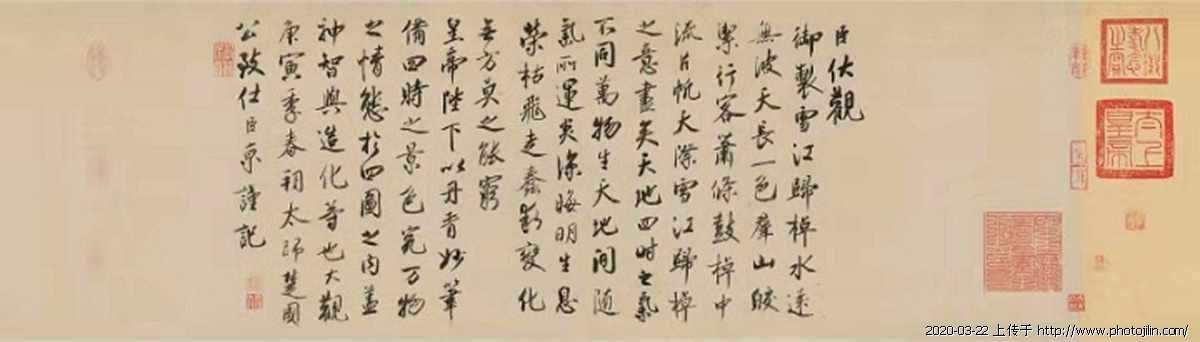 臣伏觀
御製雪江歸棹水遠
無波天長一色群山皎
潔行客蕭條鼓棹中
流片帆天際雪江歸棹
之意盡矣天地四時之氣
不同萬物生天地間隨
氣所運炎涼晦明生息
榮枯飛走蠢動變化
無方莫之能窮
皇帝陛下以丹青妙筆
備四時之景色究萬物
之情態於四圖之內蓋
神智與造化等也大觀
庚寅季春朔太師楚國
公致仕臣京謹記
八徵耄念之寶
太上皇帝
2020-03-22 上传于 http://www.photojilin.com/